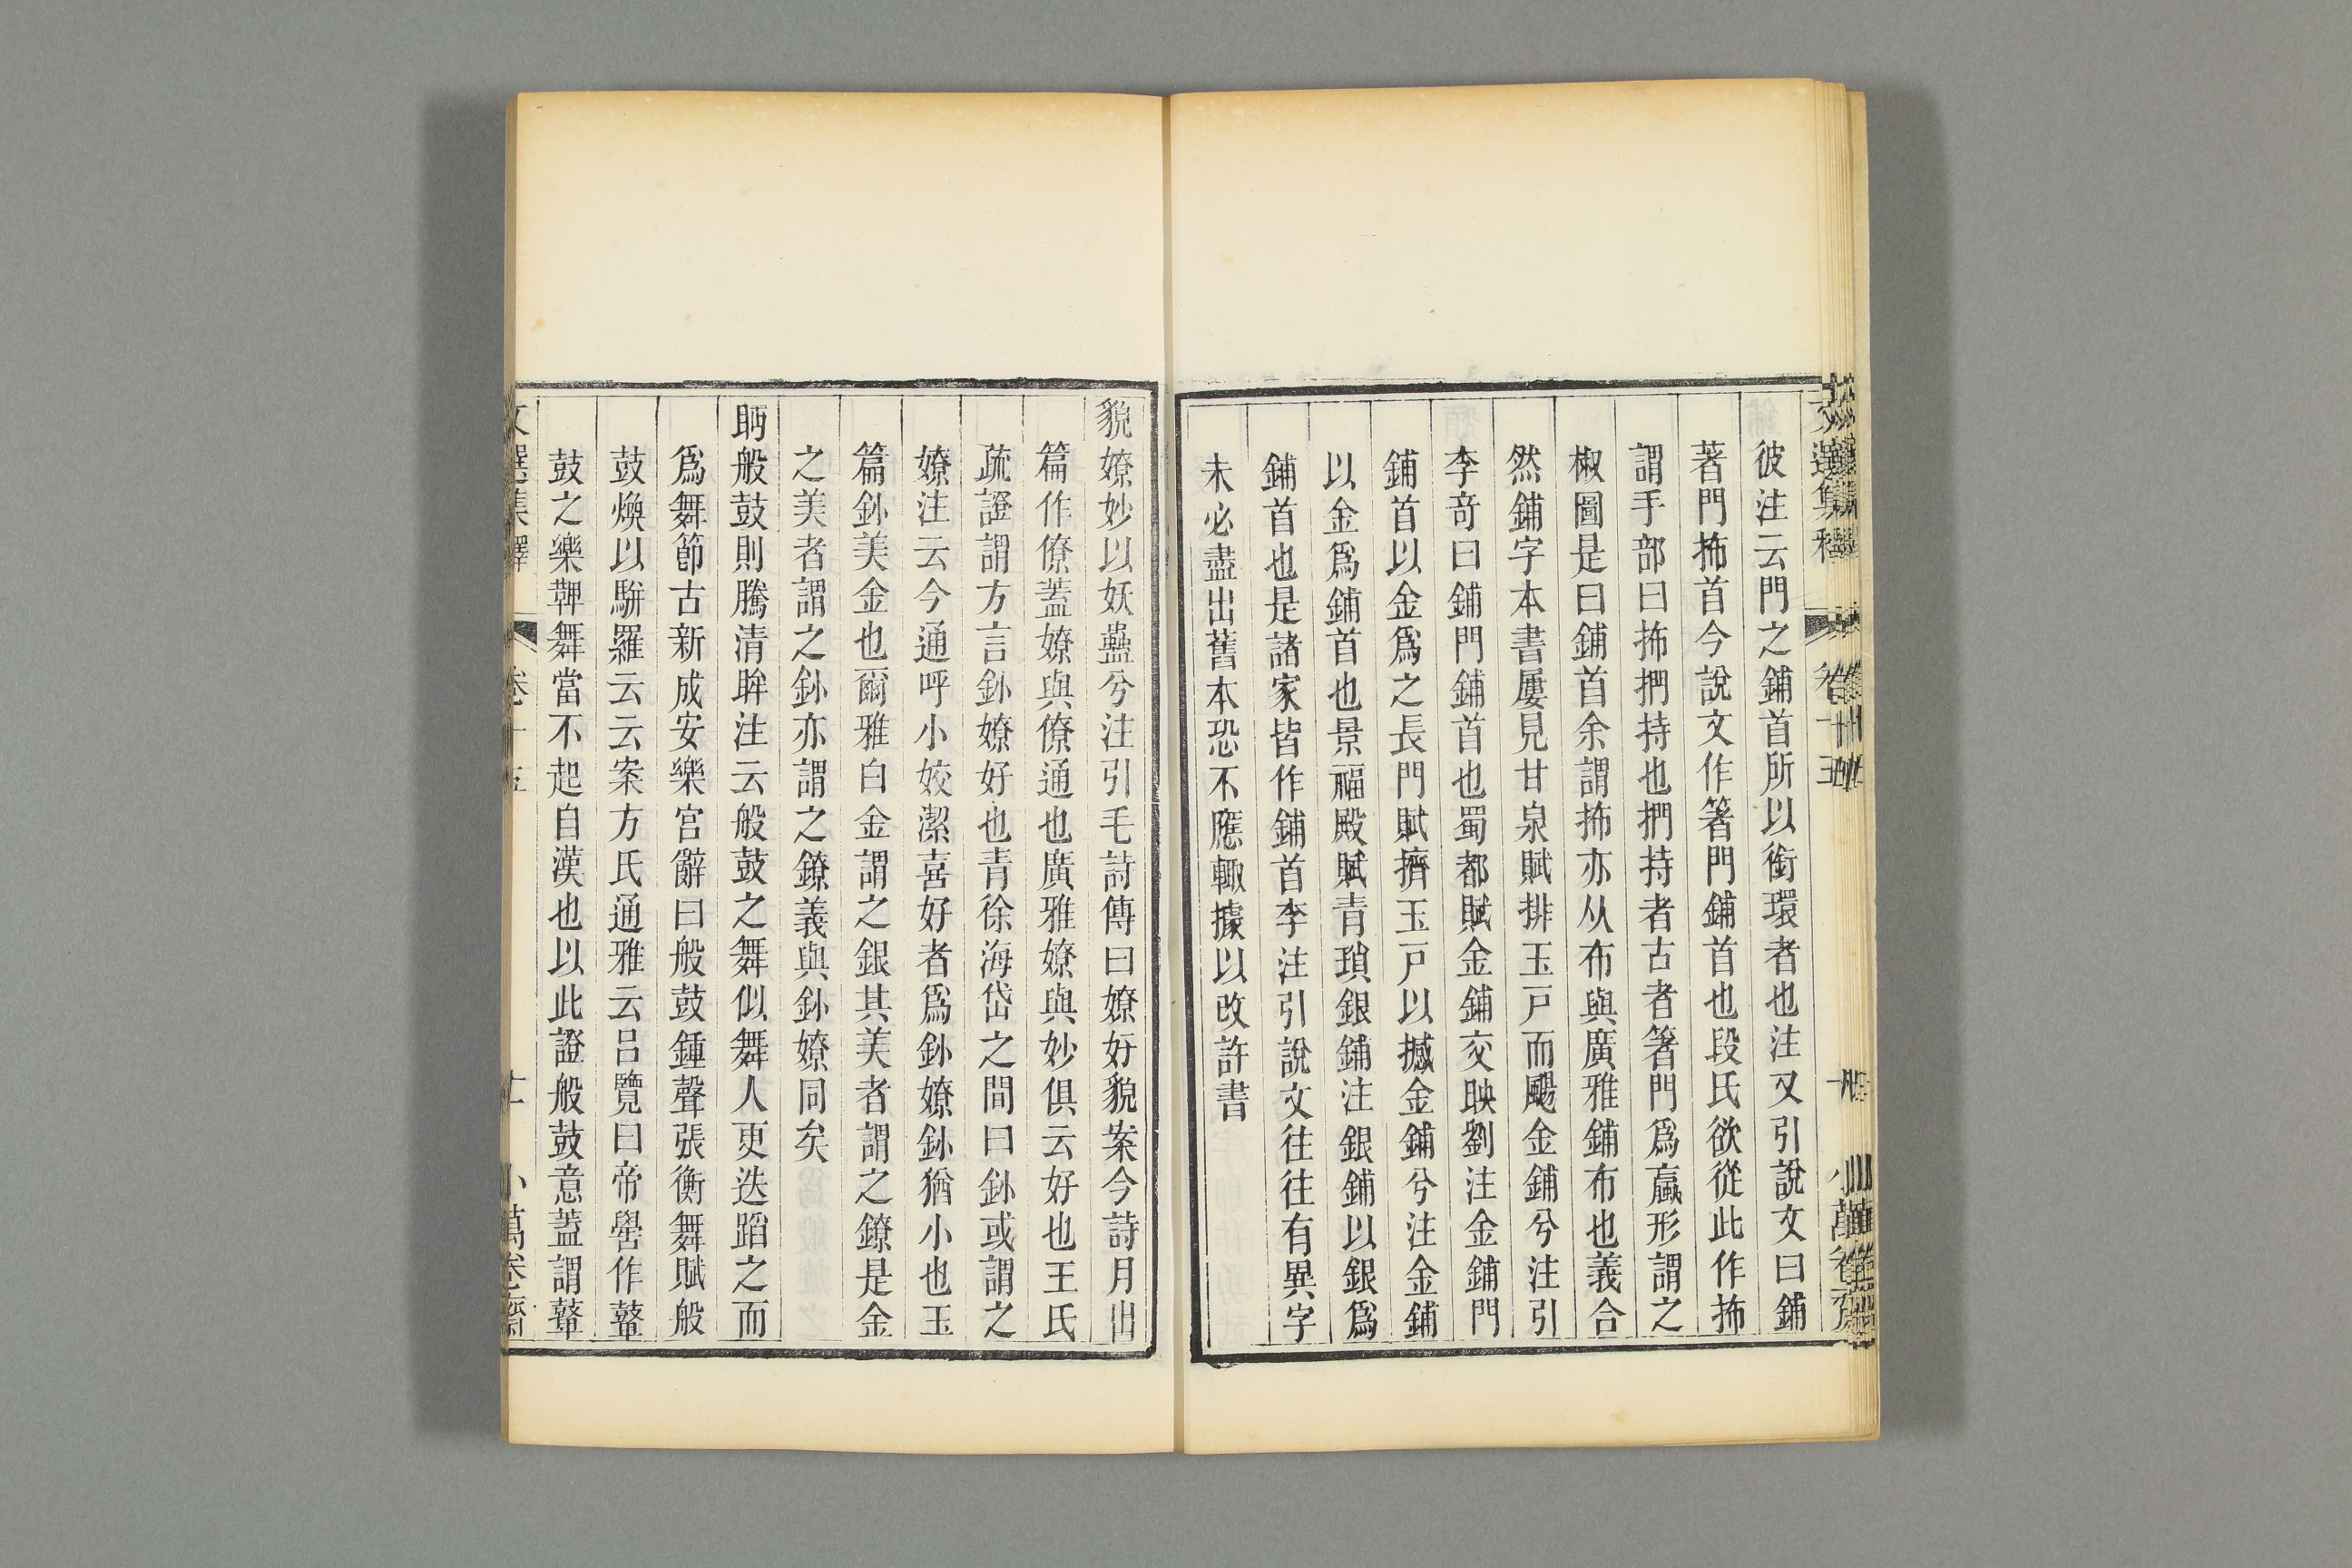 彼注云門之鋪首所以銜環者也注又引說文曰鋪
著門抪首今說文作箸門鋪首也段氏欲從此作抪
謂手部曰抪捫持也捫持者古者箸門爲蠃形謂之
椒圖是曰鋪首余謂抪亦从布與廣雅鋪布也義合
然鋪字本書屢見甘泉賦排玉戸而颺金鋪兮注引
李奇曰鋪門鋪首也蜀都賦金鋪交映劉注金鋪門
鋪首以金爲之長門賦擠玉戸以撼金鋪兮注金鋪
以金爲鋪首也景福殿賦青瑣銀鋪注銀鋪以銀爲
鋪首也是諸家皆作鋪首李注引說文往往有異字
未必盡出舊本恐不應輙據以改許書
貌嫽妙以妖蠱兮注引毛詩傳曰嫽好貌案今詩月出
篇作僚蓋嫽與僚通也廣雅嫽與妙俱云好也王氏
疏證謂方言釥嫽好也青徐海岱之間曰釥或謂之
嫽注云今通呼小姣潔喜好者爲釥嫽釥猶小也玉
篇釥美金也爾雅白金謂之銀其美者謂之鐐是金
之美者謂之釥亦謂之鐐義與釥嫽同矣
眄般鼓則騰清眸注云般鼓之舞似舞人更迭蹈之而
爲舞節古新成安樂宮辭曰般鼓鍾聲張衡舞賦般
鼓煥以駢羅云云案方氏通雅云呂覽曰帝嚳作鼙
鼓之樂鞞舞當不起自漢也以此證般鼓意蓋謂鼙
文選集釋
卷十五
小萬卷齋